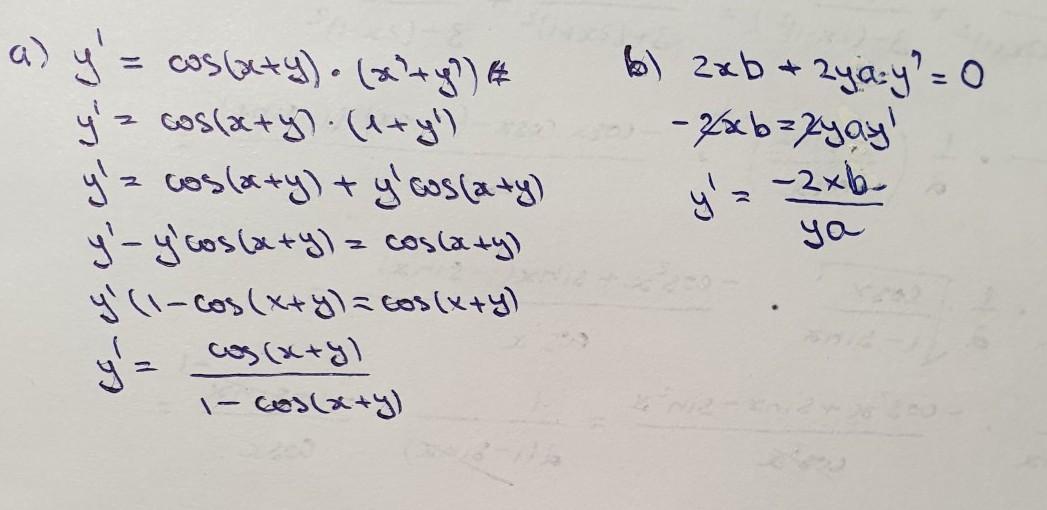 a) y' = cos(x+y) · (x'+y')
y' = cos(x+y) · (1+y')
y' = cos(x+y) + y'cos(x+y)
y' - y'cos(x+y) = cos(x+y)
y'(1-cos(x+y) = cos(x+y)
y' = cos(x+y) / 1 - cos(x+y)
b) 2xb + 2ya·y' = 0
-2xb = 2yay'
y' = -2xb / ya